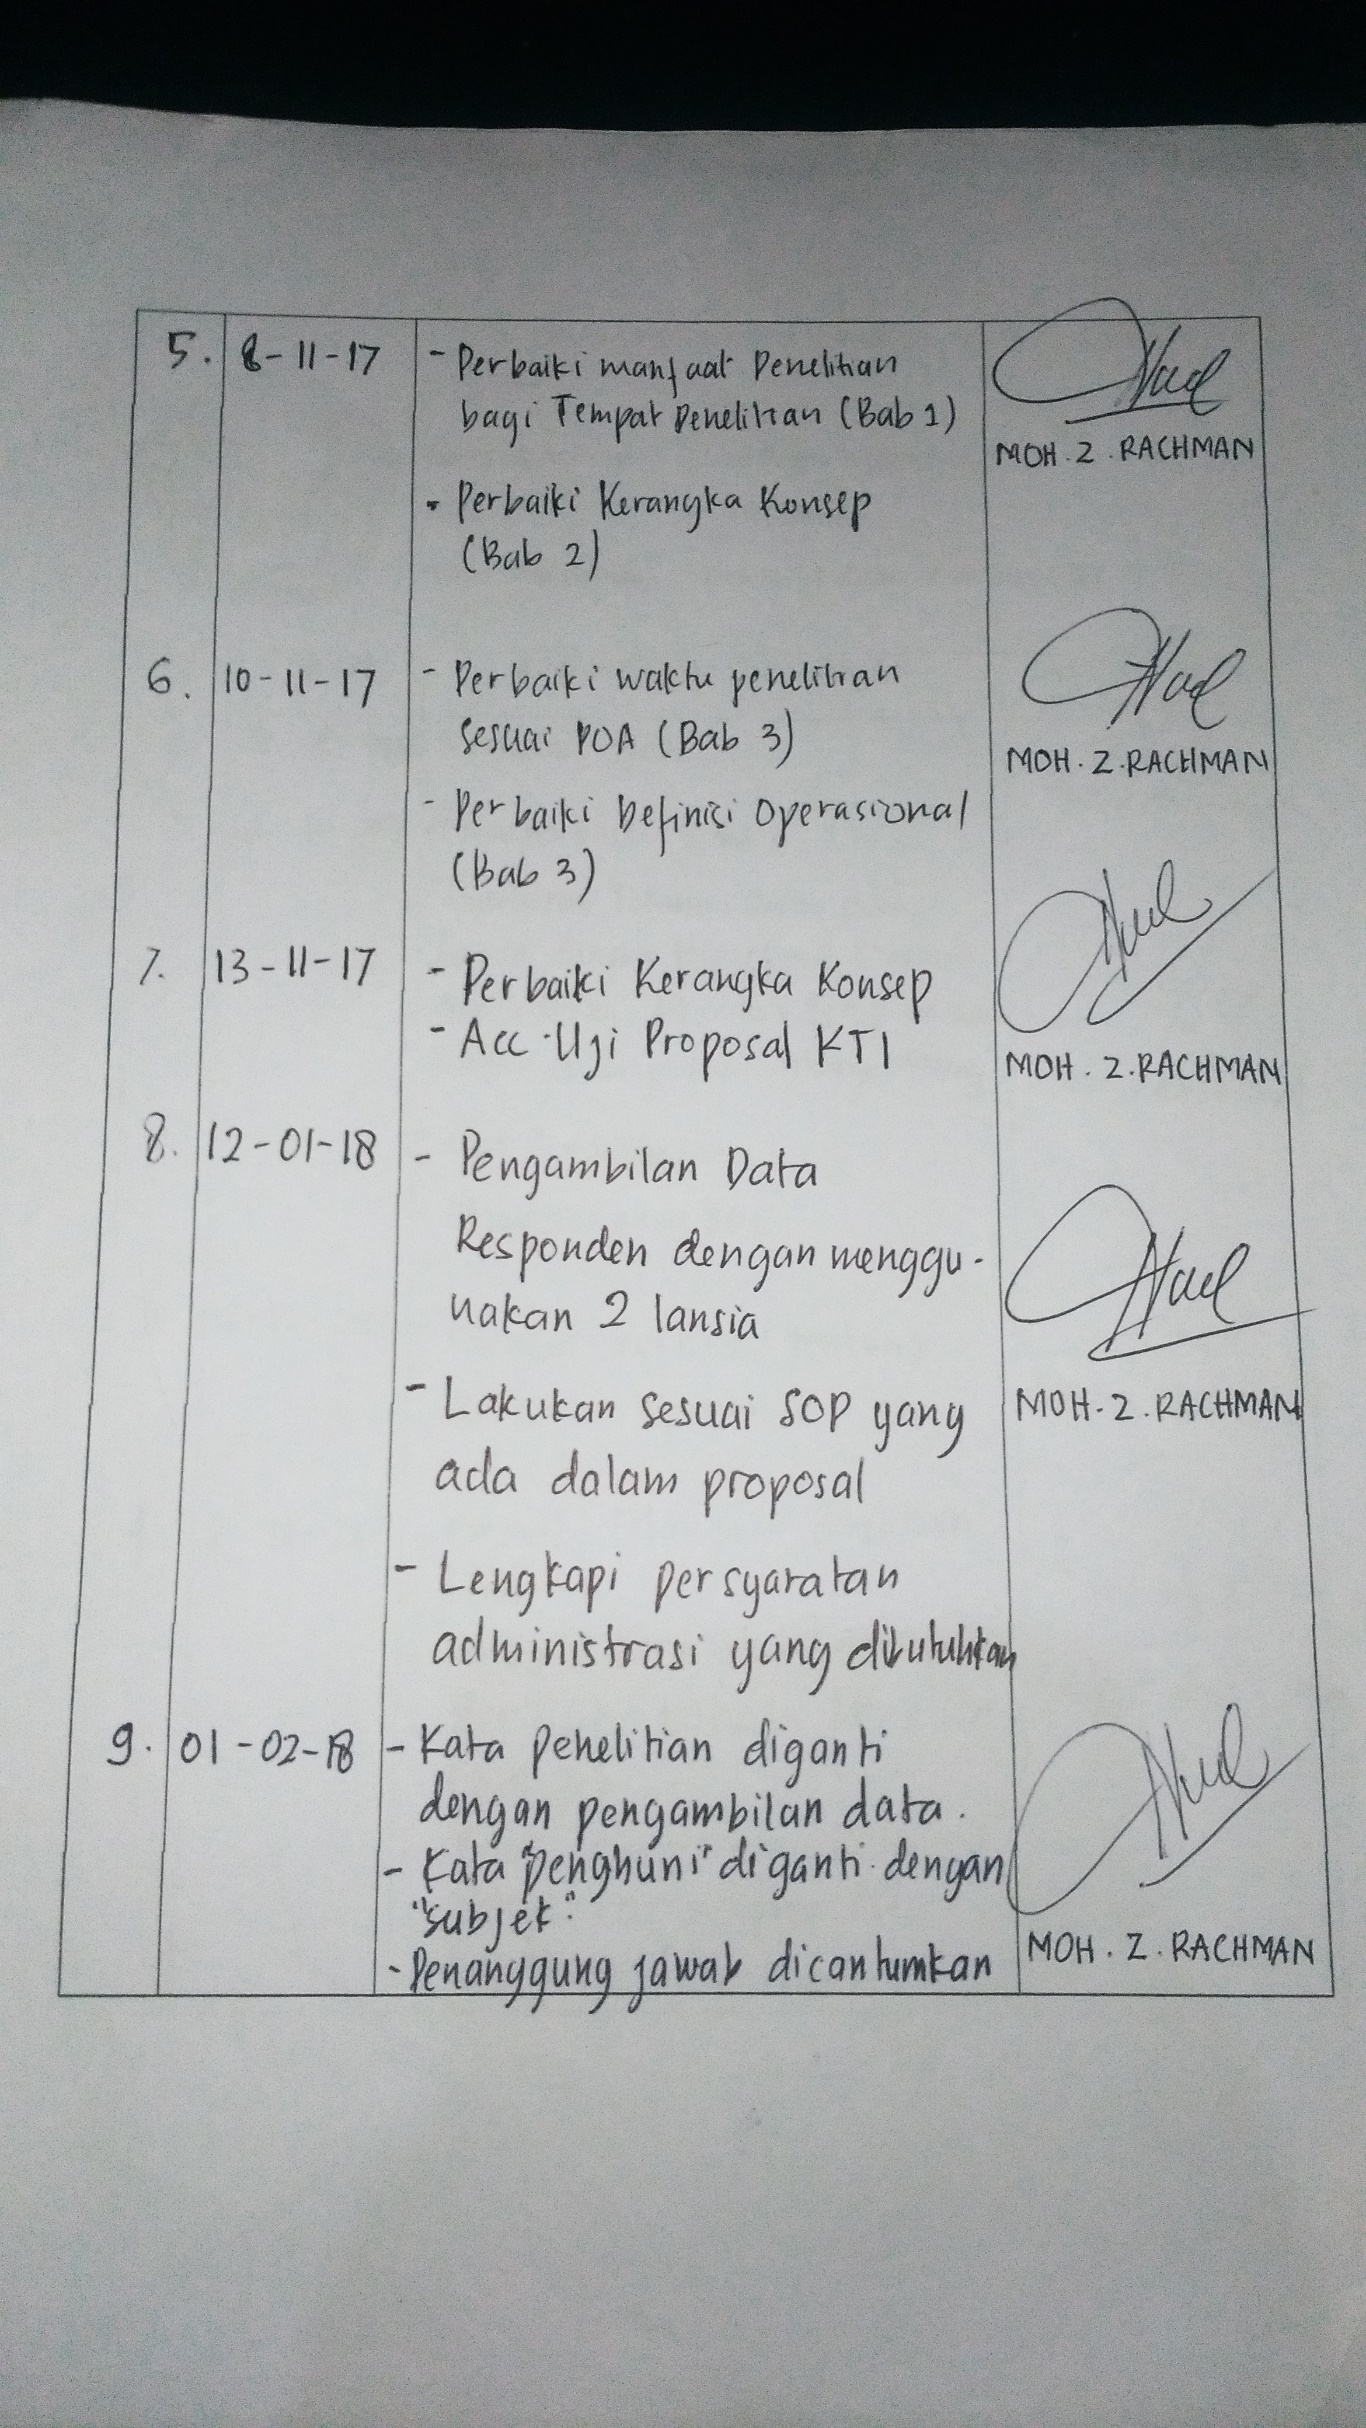 5. 8-11-17 - Perbaiki manfaat Penelitian
bagi Tempat Penelitian (Bab 1)
MOH. Z. RACHMAN
- Perbaiki Kerangka Konsep
(Bab 2)
6. 10-11-17 - Perbaiki waktu penelitian
sesuai POA (Bab 3)
MOH. Z. RACHMAN
- Perbaiki Definisi Operasional
(Bab 3)
7. 13-11-17 - Perbaiki Kerangka Konsep
- Acc Uji Proposal KTI
MOH. Z. RACHMAN
8. 12-01-18 - Pengambilan Data
Responden dengan menggu-
nakan 2 lansia
- Lakukan sesuai SOP yang
MOH. Z. RACHMAN
ada dalam proposal
- Lengkapi persyaratan
administrasi yang dibutuhkan
9. 01-02-18 - Kata Penelitian diganti
dengan pengambilan data.
- Kata "penghuni" diganti dengan
"subjek".
- Penanggung jawab dicantumkan
MOH. Z. RACHMAN